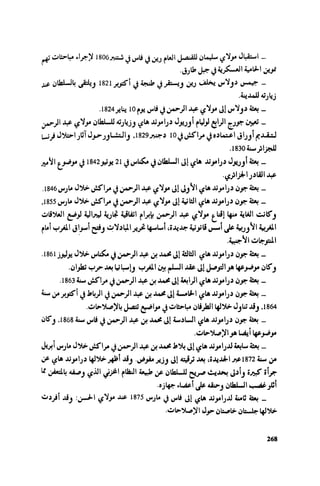 ـ استقبال مولاي سليمان للقنصل العام رين في فاس في شتنبر 1806 لإجراء مباحثات تهم
تموين الحامية العسكرية في جبل طارق.
ـ جيمس دولاس يخلف رين ويستقر في طنجة في أكتوبر 1821 ويلتقي بالسلطان عند
زيارته للمدينة.
ـ بعثة دولاس إلى مولاي عبد الرحمن في فاس يوم 10 يناير 1824.
ـ تعيين جورج الرابع لوليام أوريول دراموند هاي وزيارته للسلطان مولاي عبد الرحمن
لتقديم أوراق اعتماده في مراكش في 10 دجنبر 1829، والتشاور حول آثار احتلال فرنسا
للجزائر سنة 1830.
ـ بعثة أوريول دراموند هاي إلى السلطان في مكناس في 21 يونيو 1842 في موضوع الأمير
عبد القادر الجزائري.
ـ بعثة جون دراموند هاي الأولى إلى مولاي عبد الرحمن في مراكش خلال مارس 1846.
ـ بعثة جون دراموند هاي الثانية إلى مولاي عبد الرحمن في مراكش خلال مارس 1855،
وكانت الغاية منها إقناع مولاي عبد الرحمن بإبرام اتفاقية تجارية ليبرالية لوضع العلاقات
المغربية الأوربية على أسس قانونية جديدة، أساسها تحرير المبادلات وفتح أسواق المغرب أمام
المنتوجات الأجنبية.
ـ بعثة جون دراموند هاي الثالثة إلى محمد بن عبد الرحمن في مكناس خلال يوليوز 1861.
وكان موضوعها هو التوصل إلى عقد السلم بين المغرب وإسبانيا بعد حرب تطوان.
ـ بعثة جون دراموند هاي الرابعة إلى محمد بن عبد الرحمن في مراكش سنة 1863.
ـ بعثة جون دراموند هاي الخامسة إلى محمد بن عبد الرحمن في الرباط في أكتوبر من سنة
1864، وقد تناول خلالها الطرفان مباحثات في مواضيع تتصل بالإصلاحات.
ـ بعثة جون دراموند هاي السادسة إلى محمد بن عبد الرحمن في فاس سنة 1868، وكان
موضوعها أيضا هو الإصلاحات.
ـ بعثة سابعة لدراموند هاي إلى بلاط محمد بن عبد الرحمن في مراكش خلال مارس أبريل
من سنة 1872 عبر الجديدة، بعد ترقيته إلى وزير مفوض. وقد أظهر خلالها دراموند هاي عن
جرأة كبيرة وأدلى بحديث صريح للسلطان عن طبيعة النظام المخزني الذي وصفه بالمتعفن مما
أثار غضب السلطان وحنقه على أعضاء جهازه.
ـ بعثة ثامنة لدراموند هاي إلى فاس في مارس 1875 عند مولاي الحسن. وقد أفردت
خلالها جلستان خاصتان حول الإصلاحات.
268